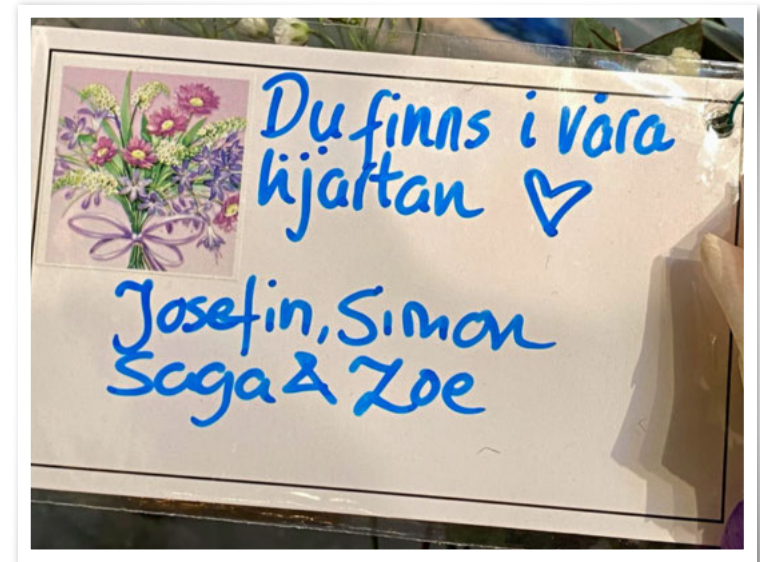 Du finns i våra
hjärtan ♡
Josefin, Simon
Saga & Zoe